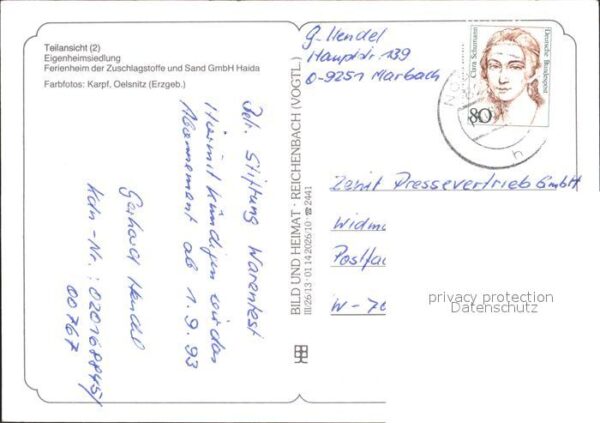 Teilansicht (2)
Eigenheimsiedlung
Ferienheim der Zuschlagstoffe und Sand GmbH Haida
Farbfotos: Karpf, Oelsnitz (Erzgeb.)
Betr. Stiftung Warentest
Hiermit kündigen wir das
Abonnement ab 1.9.93
Gerhard Hendel
Kdn-Nr.: 020168845/
00767
BILD UND HEIMAT · REICHENBACH (VOGTL.)
III/26/13 · 01 14 2026/10 · ☎ 2441
G. Hendel
Hauptstr. 139
O-9251 Marbach
Clara Schumann
Deutsche Bundespost
80
h
Zenit Pressevertrieb GmbH
Widma
Postfac
W-70
privacy protection
Datenschutz